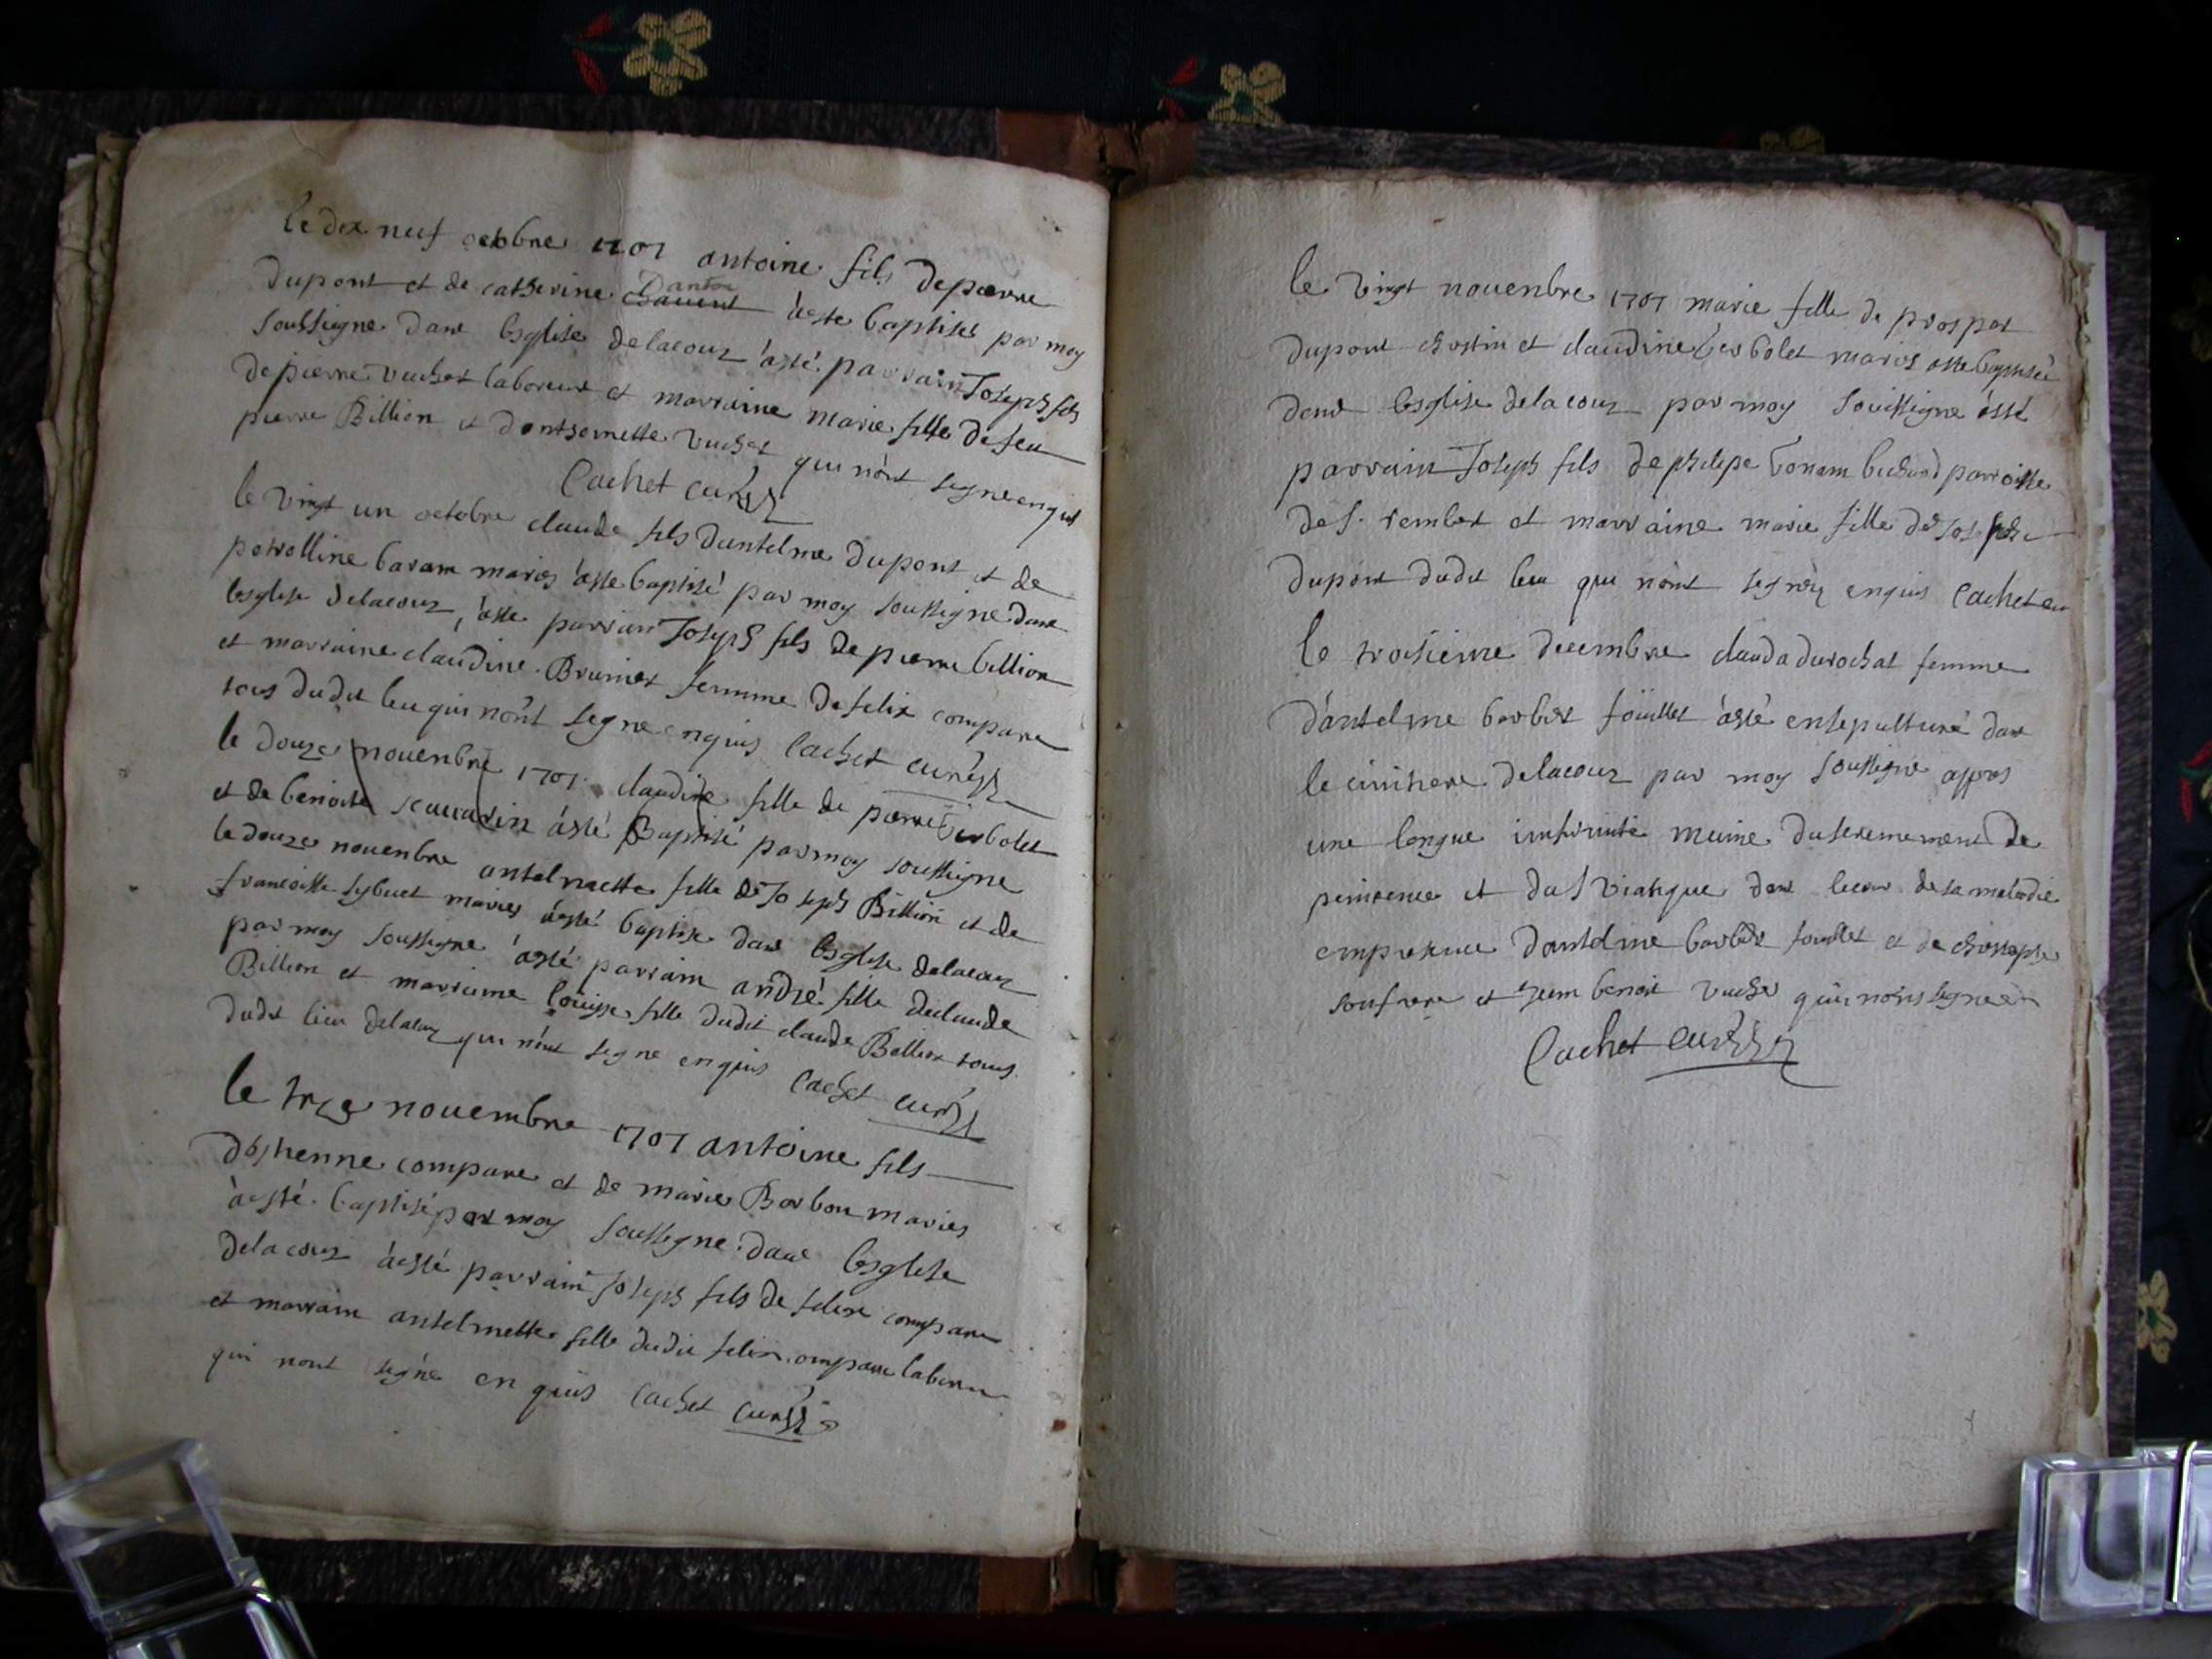 le dix neuf octobre 1707 antoine fils de pierre
dupont et de catherine chauent Danton àesté baptisé par moy
soussigne dans lesglise delacouz àesté parrain Joseph fils
de pierre vucher laboreur et marraine marie fille de feu
pierre Billion et danthemette vucher qui nònt signe enquis
Cachet curé
le vingt un octobre claude fils dantelme dupont et de
petrolline baram mariés àeste baptisé par moy soussigne dans
lesglise delacouz, àeste parrain Joseph fils de pierre billion
et marraine claudine Brunier femme de felix compare
tous dudit lieu qui nònt signe enquis Cachet curé
le douze nouenbre 1707 claudine fille de pierre berbolet
et de benoite sauuarin àesté Baptisé par moy soussigne
le douze nouenbre antelmette fille de Joseph Billion et de
francoisse sybuet mariés àesté baptise dans lesglise delacouz
par moy soussigne àesté parrain andré fille declaude
Billion et marraine louisse fille dudit claude Billion tous
dudit lieu delacouz qui nònt signe enquis Cachet curé
le treze nouembre 1707 antoine fils
destienne compare et de marie Borbon mariés
àesté baptisé par moy soussigne dans lesglise
delacouz àesté parrain Joseph fils de felix compare
et marrain antelmette fille dudit felix compare laboreur
qui nont signé en quis Cachet curé
le vingt nouenbre 1707 marie fille de prospert
dupont chostin et claudine berbolet mariés este baptisée
dans lesglise delacouz par moy soussigne àesté
parrain Joseph fils de philipe bonam buchard parroisse
de s. rembert et marraine marie fille de Joseph
dupont dudit lieu qui nònt signéz enquis Cachet cu
le troisieme decembre clauda durochat femme
dàntelme barbier foüillet àesté ensepulturé dans
le cimitiere delacouz par moy soussigne appres
une longue infirmité munie du serement de
penitence et du s viatique dans lecour de sa maladie
empresence dantelme barbier fouillet et de christophe
son frere et Jean benoit vucher qui nònt signe en
Cachet curé